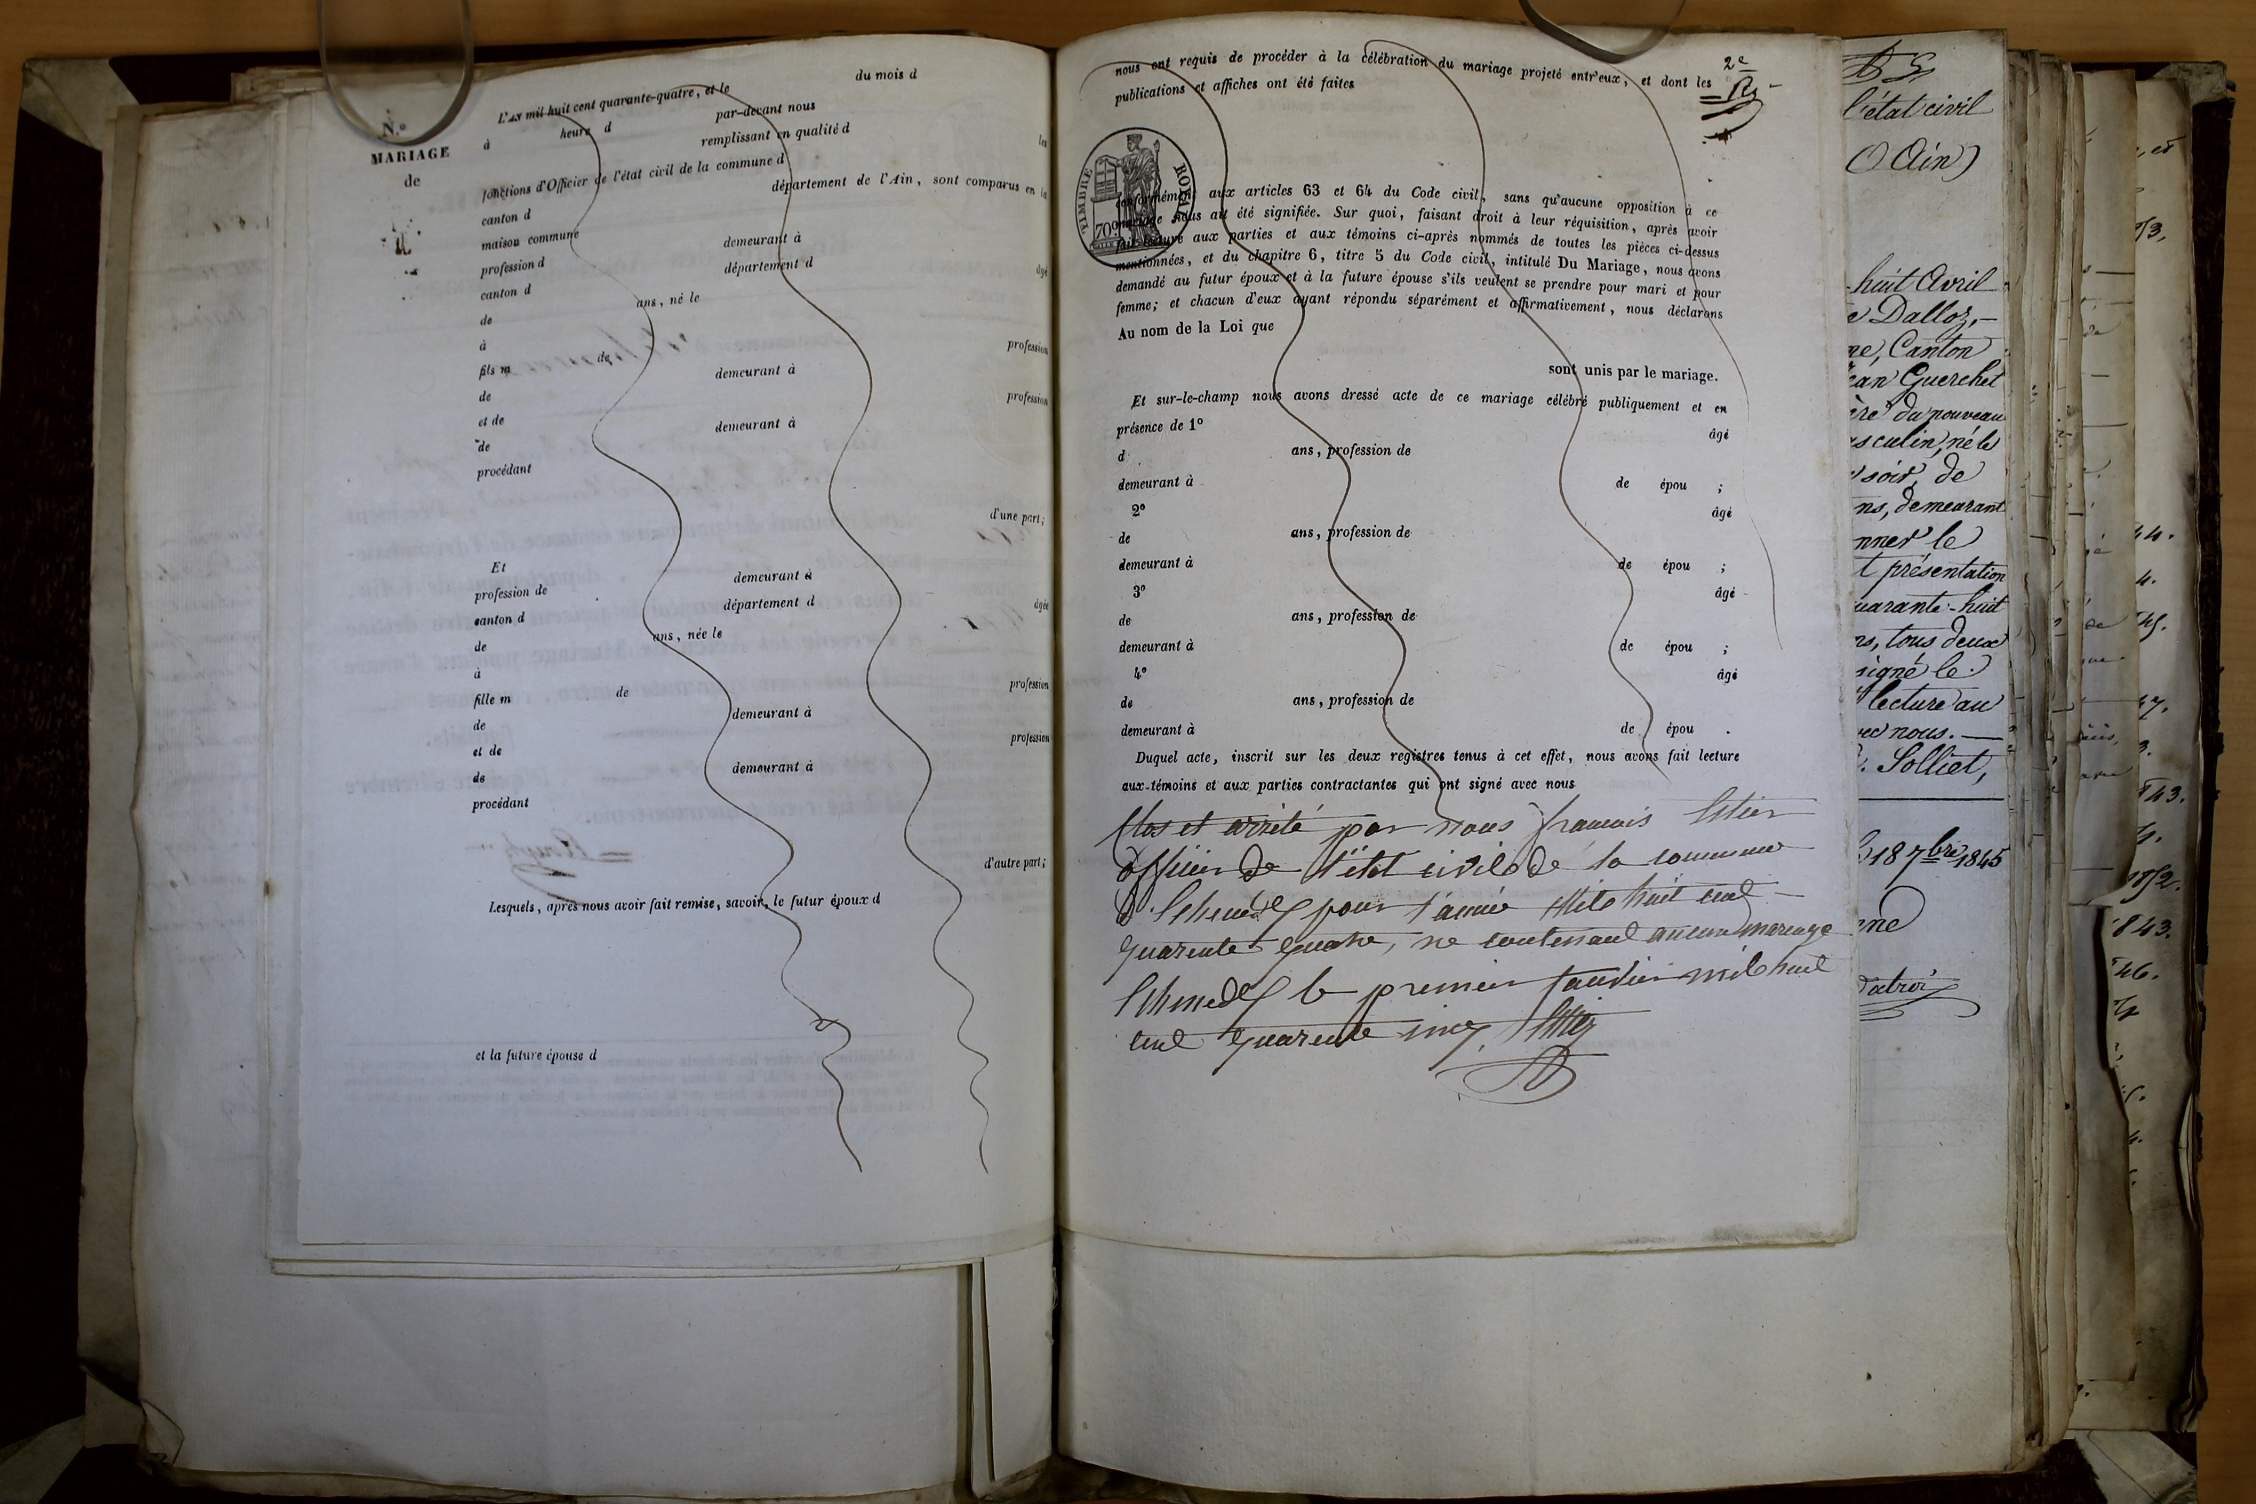 N.°
MARIAGE
de
L'AN mil huit cent quarante-quatre, et le du mois d
à heure d par-devant nous
remplissant en qualité d les
fonctions d'Officier de l'état civil de la commune d
canton d département de l'Ain, sont comparus en la
maison commune
profession d demeurant à
canton d département d âgé
de ans, né le
à
fils m de profession
de demeurant à
et de profession
de demeurant à
procédant
d'une part;
Et
profession de demeurant à
canton d département d âgée
de ans, née le
à
fille m de profession
de demeurant à
et de profession
de demeurant à
procédant
d'autre part;
Lesquels, après nous avoir fait remise, savoir, le futur époux d
et la future épouse d
2e
nous ont requis de procéder à la célébration du mariage projeté entr'eux, et dont les
publications et affiches ont été faites
TIMBRE ROYAL
70c
conformément aux articles 63 et 64 du Code civil, sans qu'aucune opposition à ce
mariage nous ait été signifiée. Sur quoi, faisant droit à leur réquisition, après avoir
fait lecture aux parties et aux témoins ci-après nommés de toutes les pièces ci-dessus
mentionnées, et du chapitre 6, titre 5 du Code civil, intitulé Du Mariage, nous avons
demandé au futur époux et à la future épouse s'ils veulent se prendre pour mari et pour
femme; et chacun d'eux ayant répondu séparément et affirmativement, nous déclarons
Au nom de la Loi que
sont unis par le mariage.
Et sur-le-champ nous avons dressé acte de ce mariage célébré publiquement et en
présence de 1° âgé
d ans, profession de
demeurant à de épou ;
2° âgé
de ans, profession de
demeurant à de épou ;
3° âgé
de ans, profession de
demeurant à de épou ;
4° âgé
de ans, profession de
demeurant à de épou .
Duquel acte, inscrit sur les deux registres tenus à cet effet, nous avons fait lecture
aux témoins et aux parties contractantes qui ont signé avec nous
Clos et arrêté par nous francois
officier de l'état civil de la commune
pour l'année mil huit cent
quarente quatre, ne contenant aucun mariage
le premier janvier mil huit
cent quarente cinq.
l'état civil
(Ain)
huit Avril
Dalloz,
Canton
Jean Guerchet
du nouveau
masculin, né le
soir, de
ans, demeurant
donner le
présentation
quarante-huit
ans, tous deux
signé le
lecture au
avec nous.
Solliet,
18 7bre 1845